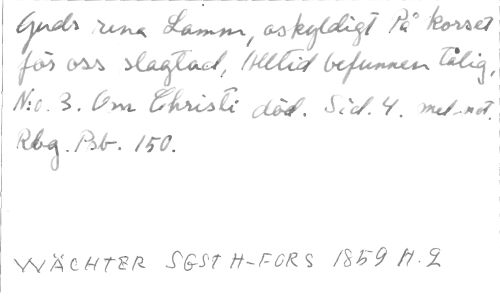 Guds rena Lamm, oskyldigt På korset
för oss slagtad, Alltid befunnen tålig,
N:o. 3. Om Christi död. Sid. 4. med not.
Rbg. Psb. 150.
WÄCHTER SGST H-FORS 1859 H. 2